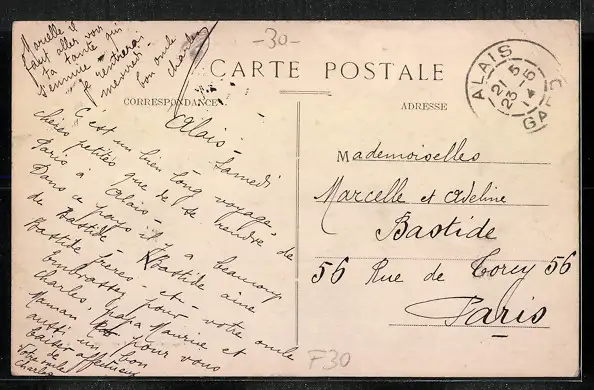 Marcelle il
faut aller voir
ta tante qui
s'ennuie
Je rentrerai
mercredi -
bon oncle
Charles
-30-
CARTE POSTALE
CORRESPONDANCE
ADRESSE
ALAIS
21 5
23 -6
GARD
Alais - Samedi
C'est un bien long voyage,
chères petites que de se rendre de
Paris à Alais -
Dans ce pays il y a beaucoup
de Bastide - Bastide aîné
Bastide frères - et - votre oncle
Charles, papa Maurice et
Maman pour vous
aussi un bon
baiser affectueux
de
Votre oncle
Charles
Mademoiselles
Marcelle et Adeline
Bastide
56 Rue de Torcy 56
Paris
F30